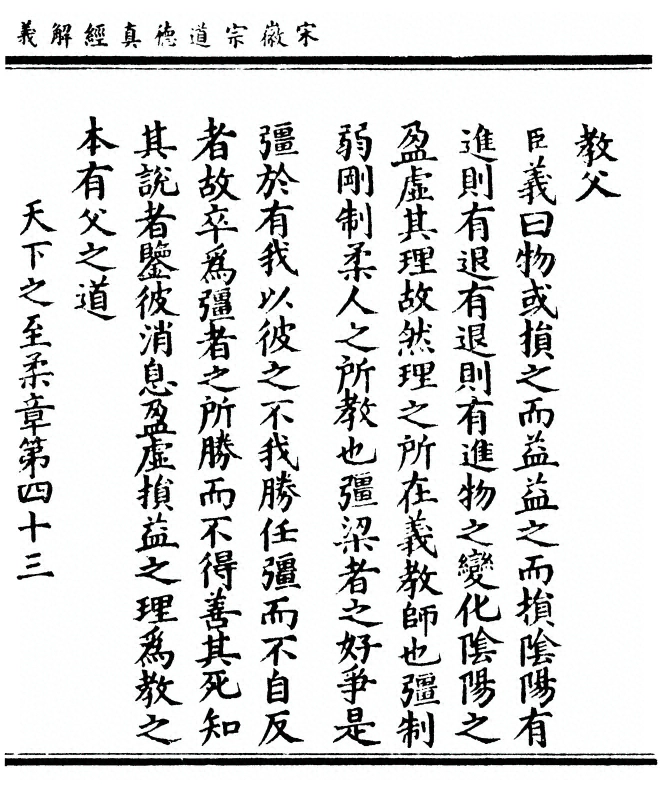 宋徽宗道德真經解義
教父
臣義曰物或損之而益益之而損陰陽有
進則有退有退則有進物之變化陰陽之
盈虛其理故然理之所在義教師也彊制
弱剛制柔人之所教也彊梁者之好爭是
彊於有我以彼之不我勝任彊而不自反
者故卒爲彊者之所勝而不得善其死知
其說者鑒彼消息盈虛損益之理爲教之
本有父之道
天下之至柔章第四十三